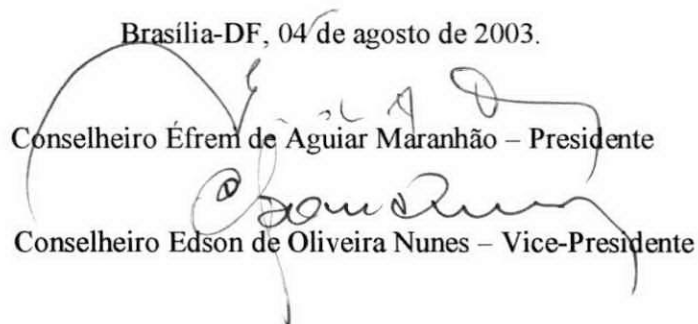 Brasília-DF, 04 de agosto de 2003.
Conselheiro Éfrem de Aguiar Maranhão – Presidente
Conselheiro Edson de Oliveira Nunes – Vice-Presidente